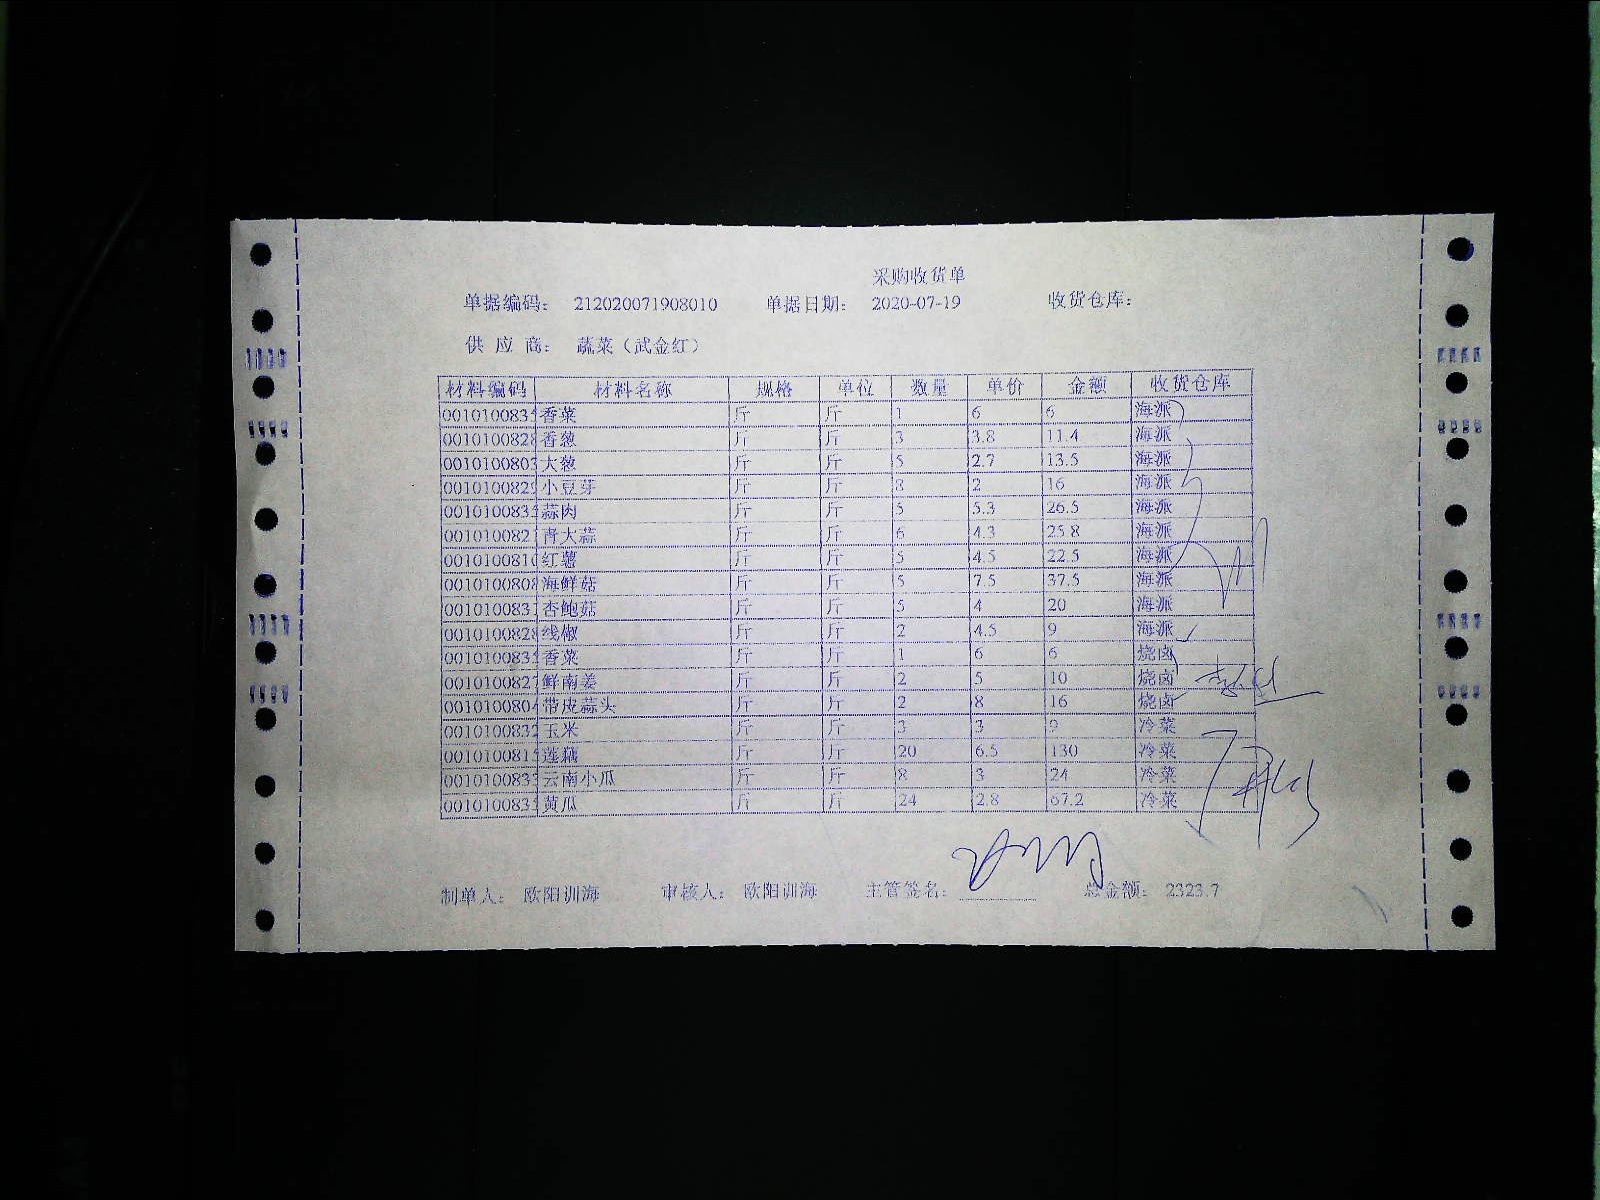 采购收货单
单据编码： 212020071908010 单据日期： 2020-07-19 收货仓库：
供 应 商： 蔬菜（武金红）
材料编码 材料名称 规格 单位 数量 单价 金额 收货仓库
001010083 香菜 斤 斤 1 6 6 海派
001010082 香葱 斤 斤 3 3.8 11.4 海派
0010100803 大葱 斤 斤 5 2.7 13.5 海派
001010082 小豆芽 斤 斤 8 2 16 海派
001010083 蒜肉 斤 斤 5 5.3 26.5 海派
001010082 青大蒜 斤 斤 6 4.3 25.8 海派
001010081 红薯 斤 斤 5 4.5 22.5 海派
001010080 海鲜菇 斤 斤 5 7.5 37.5 海派
001010083 杏鲍菇 斤 斤 5 4 20 海派
001010082 线椒 斤 斤 2 4.5 9 海派
001010083 香菜 斤 斤 1 6 6 烧卤
001010082 鲜南姜 斤 斤 2 5 10 烧卤
001010080 带皮蒜头 斤 斤 2 8 16 烧卤
001010083 玉米 斤 斤 3 3 9 冷菜
001010081 莲藕 斤 斤 20 6.5 130 冷菜
001010083 云南小瓜 斤 斤 8 3 24 冷菜
001010083 黄瓜 斤 斤 24 2.8 67.2 冷菜
制单人： 欧阳训海 审核人： 欧阳训海 主管签名： 总金额： 2323.7